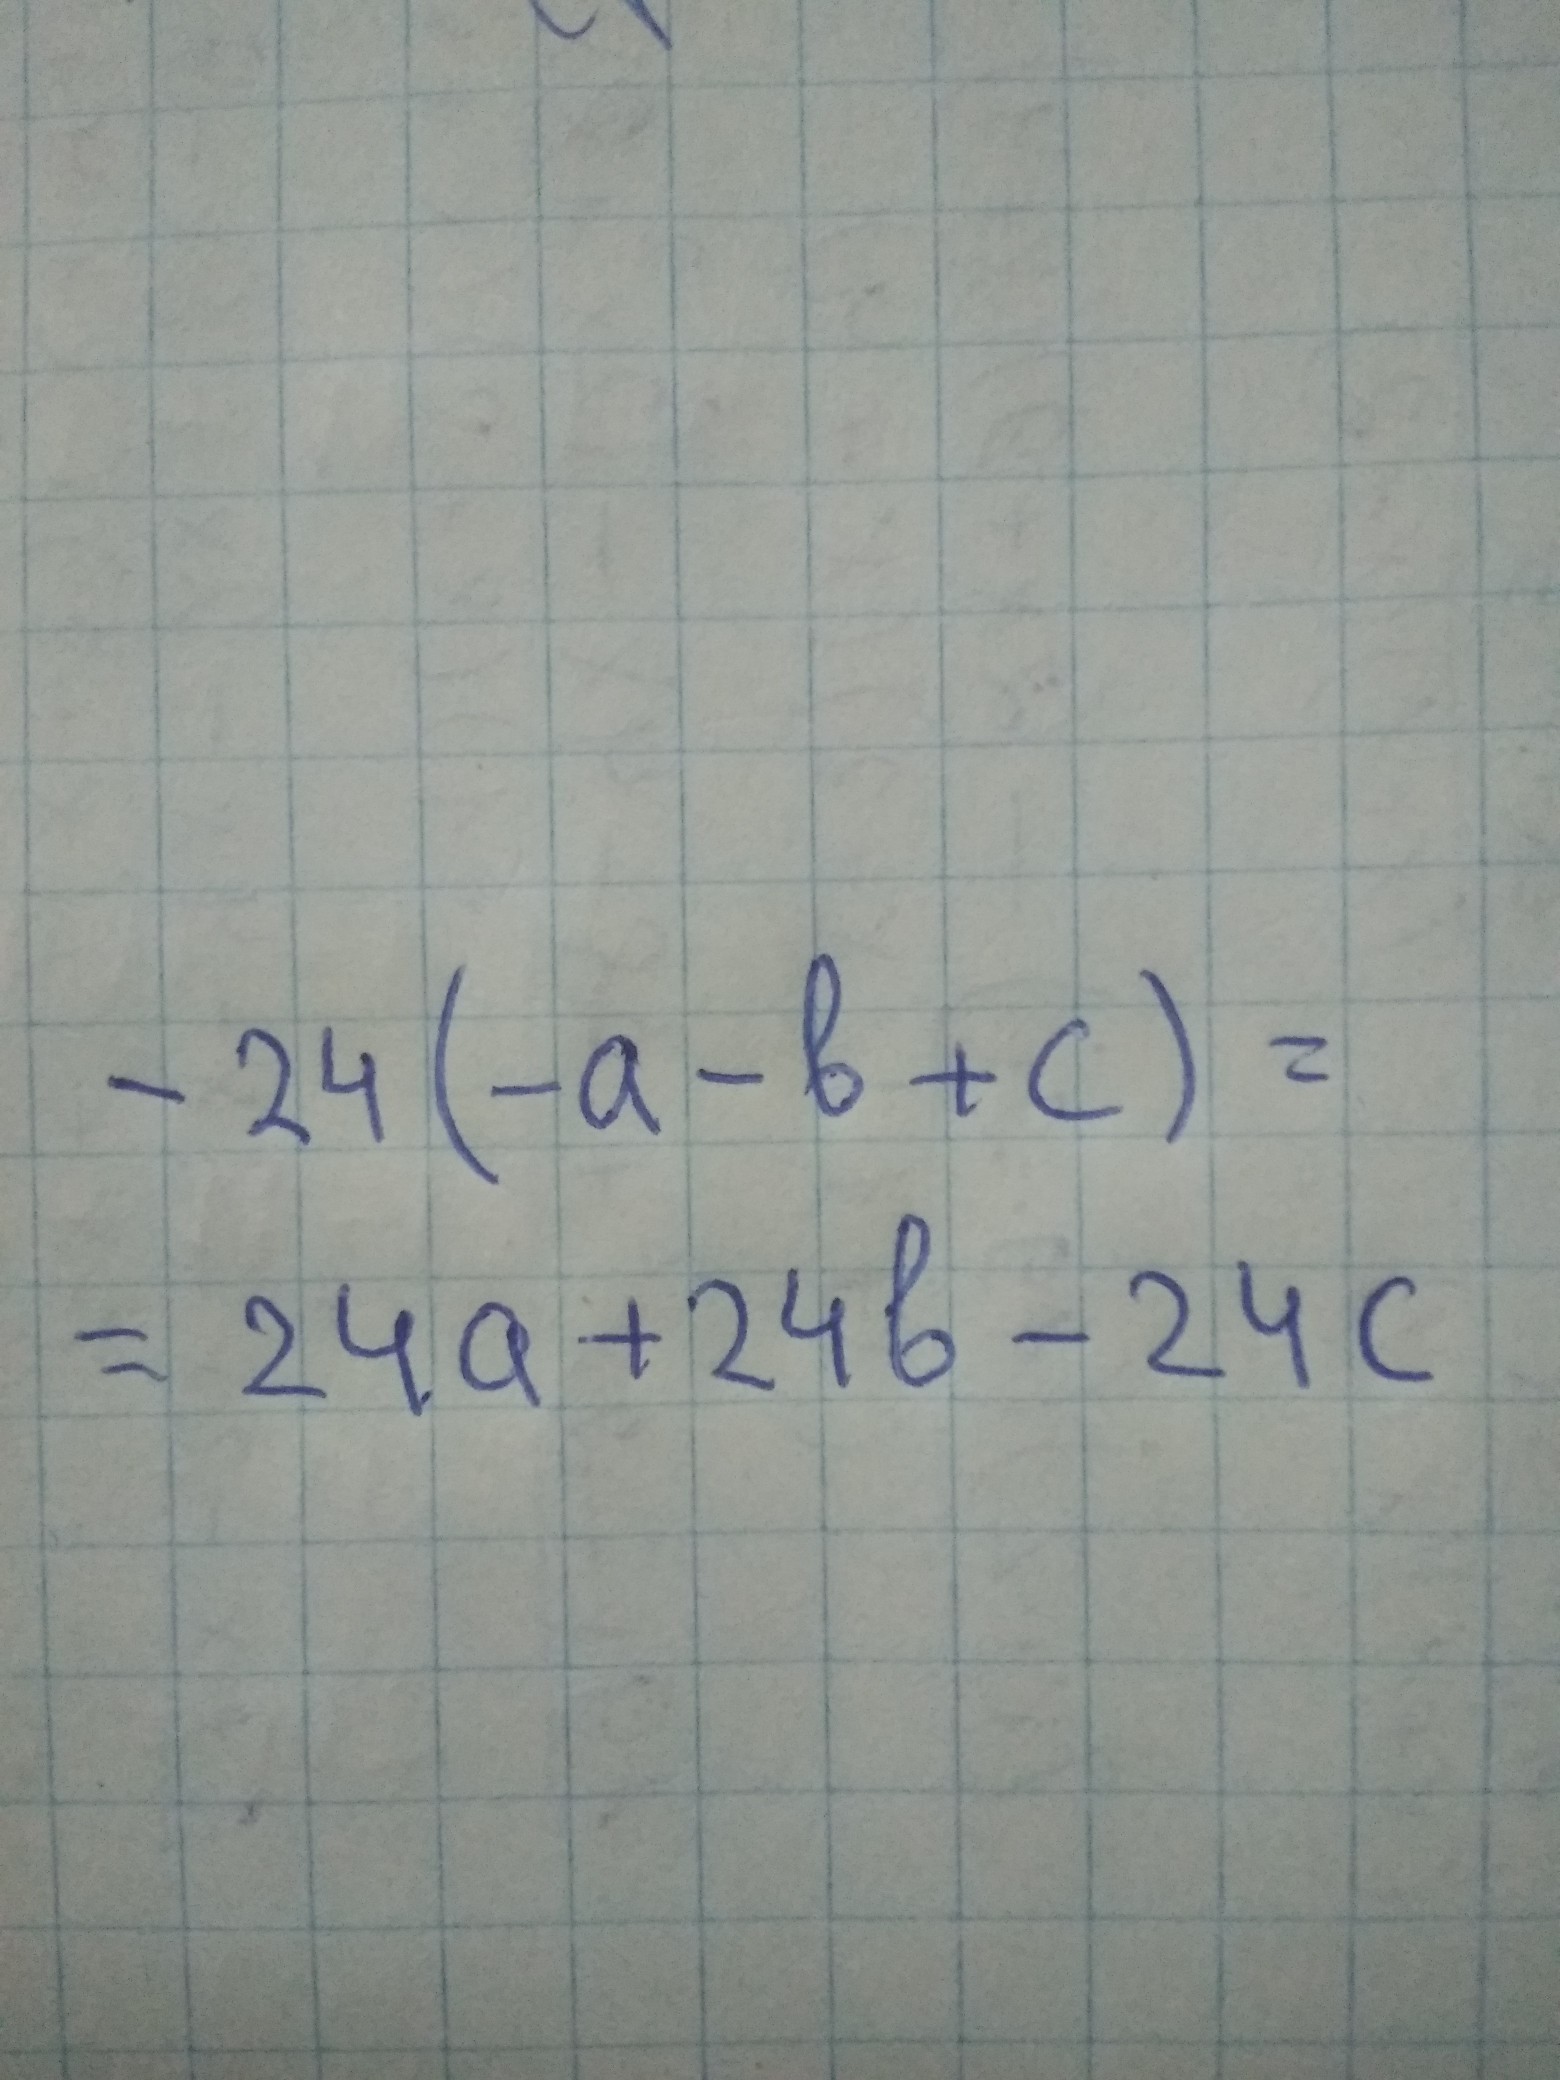 - 24 (- a - b + c) =
= 24a + 24b - 24c